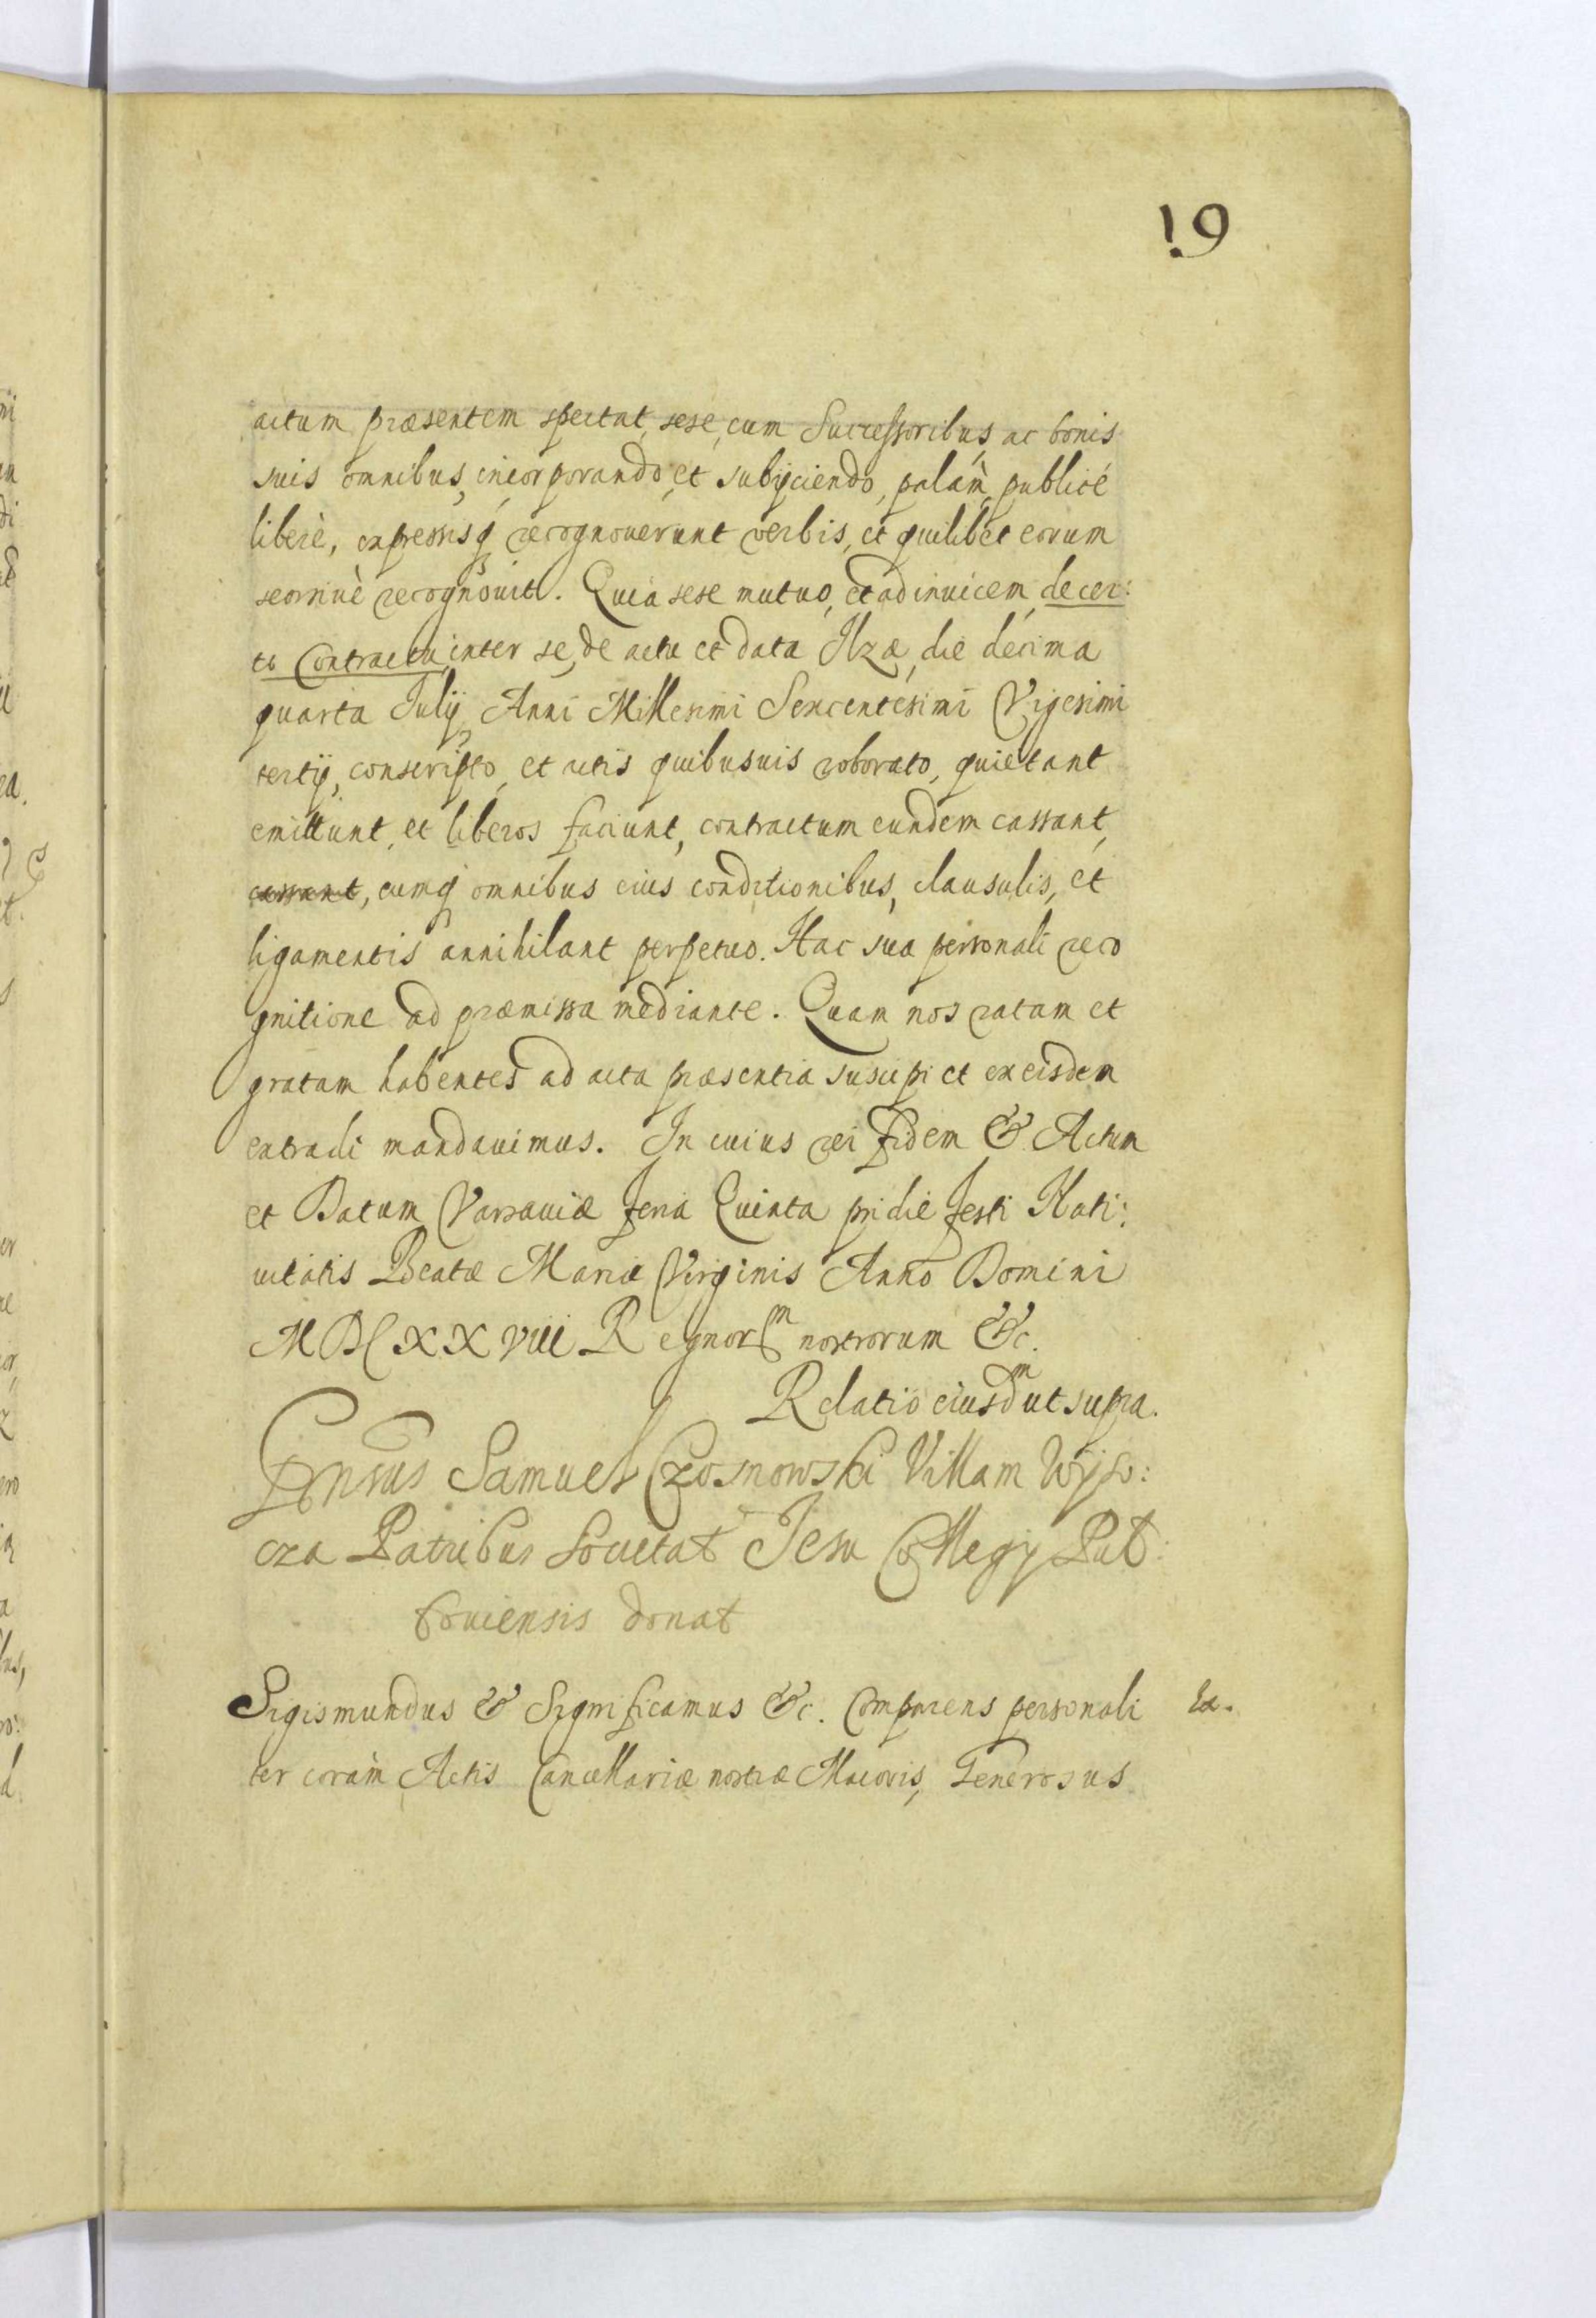 19
actum præsentem spectat, sese, cum Successoribus, ac bonis
suis omnibus, incorporando, et subijciendo, palàm, publicé
liberè, expressisq recognouerunt verbis, et quilibet eorum
seorsiuè recognouit. Quia sese mutuo, et ad inuicem, de cer:
to Contractu, inter se, de actu et data Ilzæ, die decima
quarta Julij, Anni Millesimi Sexcentesimi Vigesimi
tertij, conscripto, et actis quibusuis roborato, quietant
emittunt, et liberos faciunt, contractum eundem cassant,
cassant, eumq omnibus eius conditionibus, clausulis, et
ligamentis annihilant perpetuo. Hac sua personali reco
gnitione ad præmissa mediante. Quam nos ratam et
gratam habentes ad acta præsentia suscipi et ex eisdem
extradi mandauimus. In cuius rei fidem & Actum
et Datum Varsauiæ feria Quinta pridie festi Nati:
uitatis Beatæ Mariæ Virginis Anno Domini
MDCXXVIII Regnorm nostrorum &c.
Relatio eiusdm ut supra.
Gnrsus Samuel Czosnowski Villam Wyso:
cza Patribus Societat Jesu Collegij Put:
touiensis donat
Sigismundus & Significamus &c. Comparens personali Ex.
ter coràm Actis Cancellariæ nostræ Maioris, Generosus